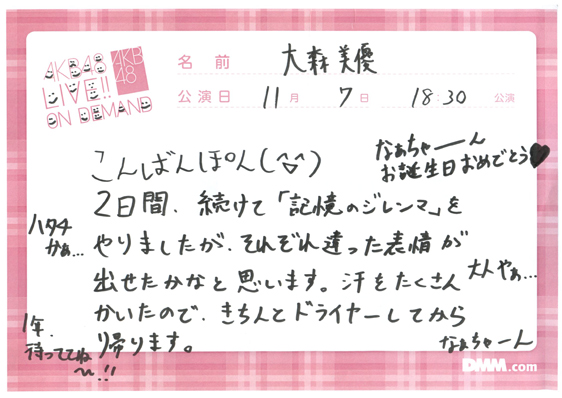 AKB48
LIVE!!
ON DEMAND
AKB
48
名前 大森美優
公演日 11月 7日 18:30 公演
こんばんぽん(^▽^)
なぁちゃーん
お誕生日おめでとう♥
2日間、続けて「記憶のジレンマ」を
やりましたが、それぞれ違った表情が
出せたかなと思います。汗をたくさん
かいたので、きちんとドライヤーしてから
帰ります。
ハタチ
かぁ...
大人やぁ...
1年、
待っててね
〜!!
なぁちゃーん
DMM.com